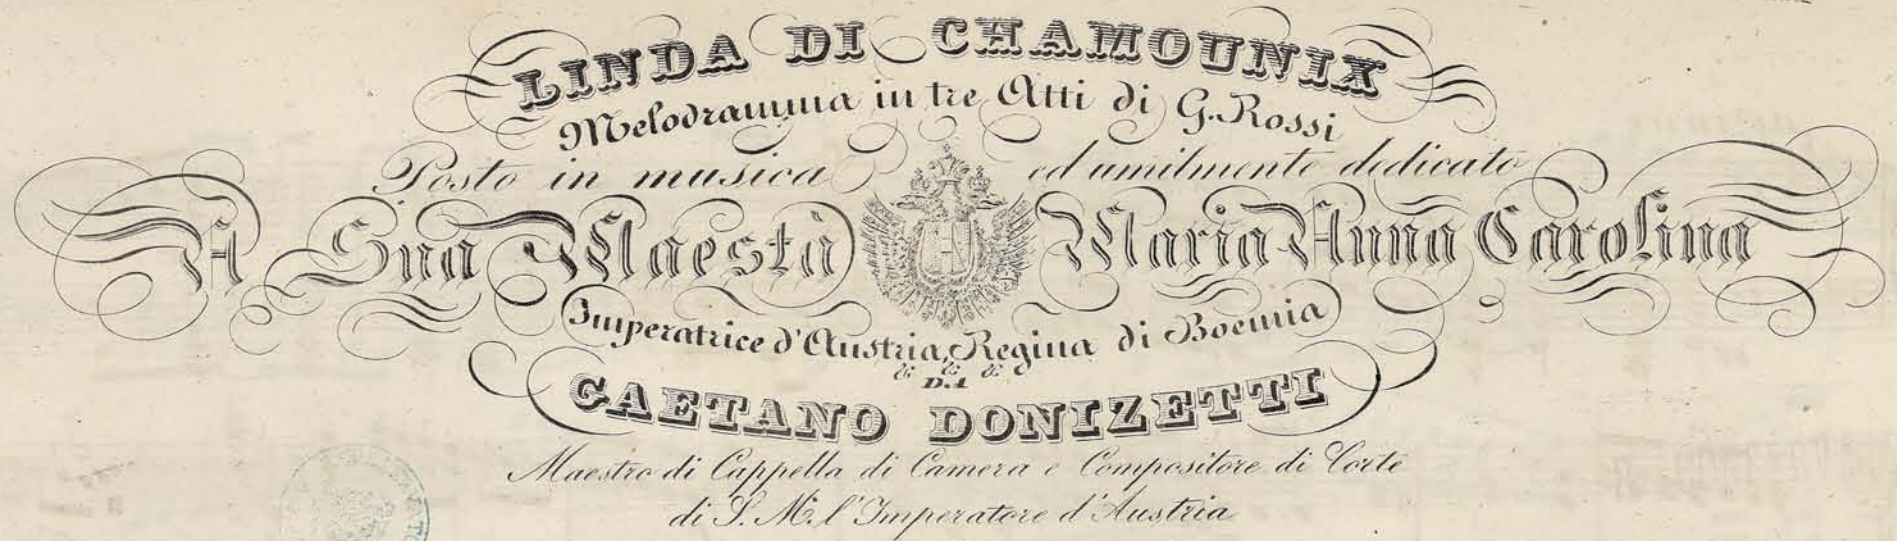 LINDA DI CHAMOUNIX
Melodramma in tre Atti di G. Rossi
Posto in musica ed umilmente dedicato
A Sua Maestà Maria Anna Carolina
Imperatrice d'Austria, Regina di Boemia
&. &. &.
DA
GAETANO DONIZETTI
Maestro di Cappella di Camera e Compositore di Corte
di S. M. l'Imperatore d'Austria